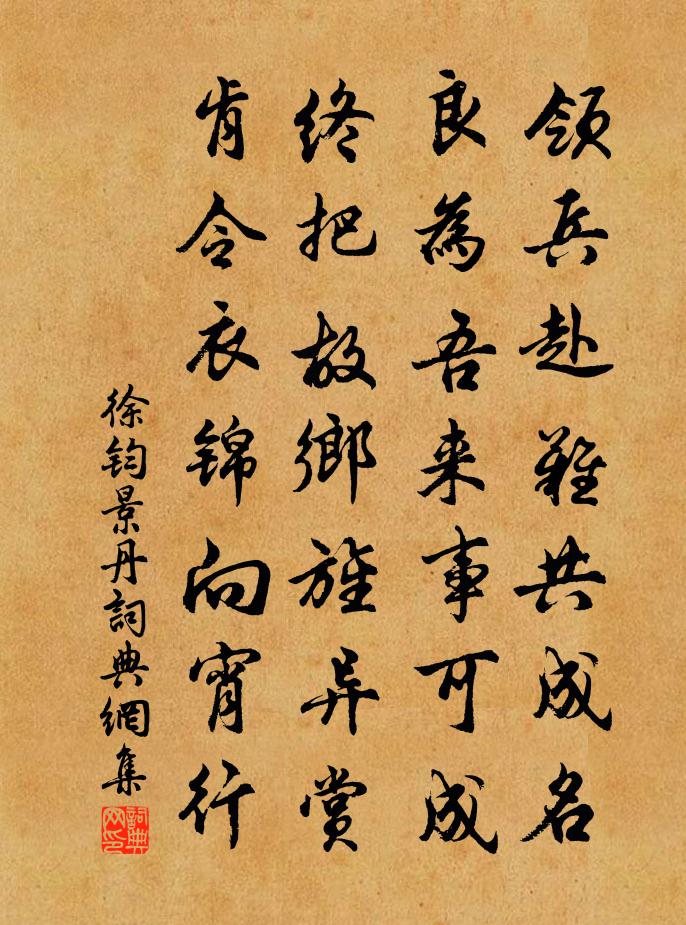 领兵赴难共成名
良為吾来事可成
终把故鄉旌异赏
肯令衣锦向宵行
徐钧景丹詞典網集
詞典网印